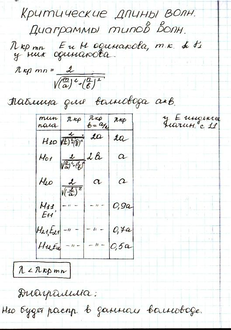 Критические длины волн.
Диаграммы типов волн.
λкр mn E и H одинакова, т.к.
у них одинакова.
λкр mn = 2 / √((m/a)² + (n/b)²)
Таблица для волновода a×b.
тип поля λкр λкр b=a/2 λкр
H10 2a 2a
H01 2b a
H20 a a
H11 E11 --- --- 0,9a
--- --- 0,7a
--- --- 0,5a
λ < λкр mn
Диаграмма:
H10 будет распр. в данном волноводе.